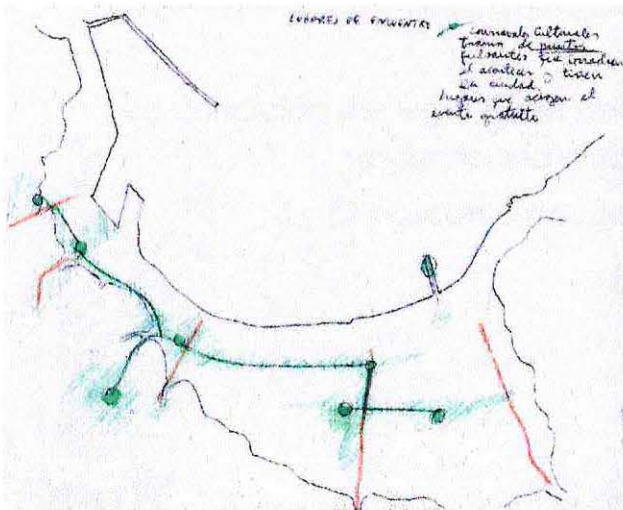 LUGARES DE ENCUENTRO
Carnavales Culturales
trama de puntos
pulsantes que irradian
el acontecer o tiñen
la ciudad.
lugares que acogen el
evento gratuito